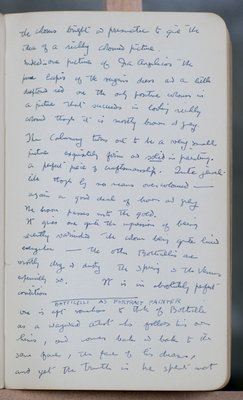 the colours bright & prismatic to give the
idea of a richly coloured picture.
Indeed in one picture of Fra Angelico's the
pure lapis of the virgin's dress and a little
red are the only positive colours in
a picture that succeeds in looking richly
coloured though it is mostly brown & grey.
The Calumny turns out to be a very small
picture exquisitely firm and solid in painting.
a perfect piece of craftsmanship. Quite jewel-
like though by no means overcoloured —
again a good deal of brown and grey
the brown passes into the gold.
It gives one quite the impression of being
, the colours being quite
the other Botticellis are
mostly dry & dusty. The Spring & the Venus
especially so. It is in absolutely perfect
condition.
BOTTICELLI AS PORTRAIT PAINTER
one is apt to think of Botticelli
as a artist who follows his own
lines, and comes back & back to the
same face, the face of his dreams,
and yet the truth is he spent most